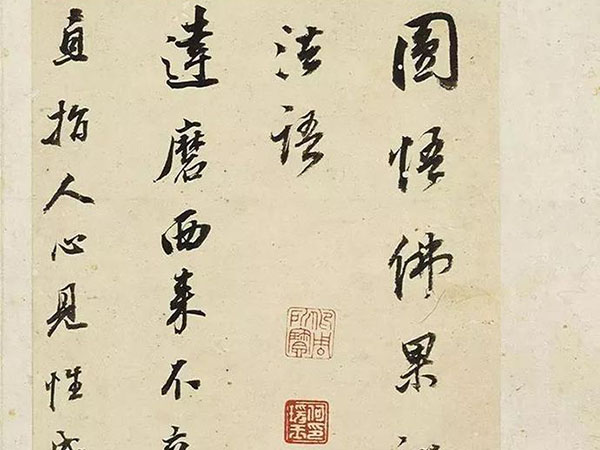 圓悟佛果
法語
達磨西來不立
直指人心見性成